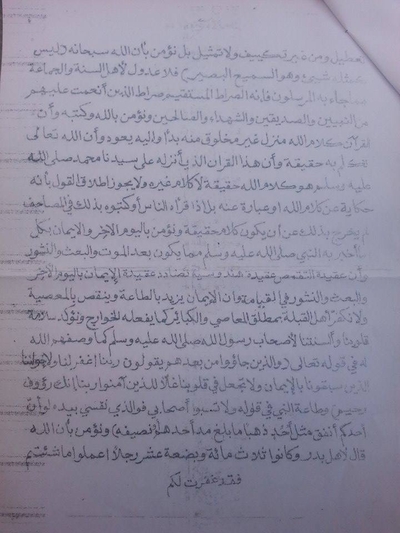 تعطيل ومن غير تكييف ولا تمثيل بل نؤمن بأن الله سبحانه (ليس
كمثله شيئ وهو السميع البصير) فلا عدول لأهل السنة والجماعة
عما جاء به المرسلون فإنه الصراط المستقيم صراط الذين أنعمت عليهم
من النبيين والصديقين والشهداء والصالحين ونؤمن بالله وكتبه وأن
القرآن كلام الله منزل غير مخلوق منه بدأ وإليه يعود وأن الله تعالى
تكلم به حقيقة وأن هذا القران الذي أنزله على سيدنا محمد صلى الله
عليه وسلم هو كلام الله حقيقة لا كلام غيره ولا يجوز اطلاق القول بأنه
حكاية عن كلام الله او عبارة عنه بل إذا قرأه الناس أو كتبوه بذلك في المصاحف
لم يخرج بذلك عن أن يكون كلامه حقيقة ونؤمن باليوم الآخر والإيمان بكل
ما أخبر به النبي صلى الله عليه وسلم مما يكون بعد الموت والبعث والنشور
وأن عقيدة التقمص عقيدة هندوسية تضاد عقيدة الإيمان باليوم الآخر
والبعث والنشور في القيامة وان الإيمان يزيد بالطاعة وينقص بالمعصية
ولا نكفر أهل القبلة بمطلق المعاصي والكبائر كما يفعله الخوارج ونؤكد سلامة
قلوبنا وألسنتنا لأصحاب رسول الله صلى الله عليه وسلم كما وصفهم الله
في قوله تعالى (والذين جاؤوا من بعدهم يقولون ربنا اغفر لنا ولإخواننا
الذين سبقونا بالإيمان ولا تجعل في قلوبنا غلا للذين آمنوا ربنا إنك رؤوف
رحيم) وطاعة النبي في قوله ولا تسبوا أصحابي فوالذي نفسي بيده لو أن
أحدكم أنفق مثل أحد ذهبا ما بلغ مد أحدهم (نصيفه) ونؤمن بأن الله
قال لأهل بدر وكانوا ثلاث مائة وبضعة عشر رجلا اعملوا ما شئتم
فقد غفرت لكم